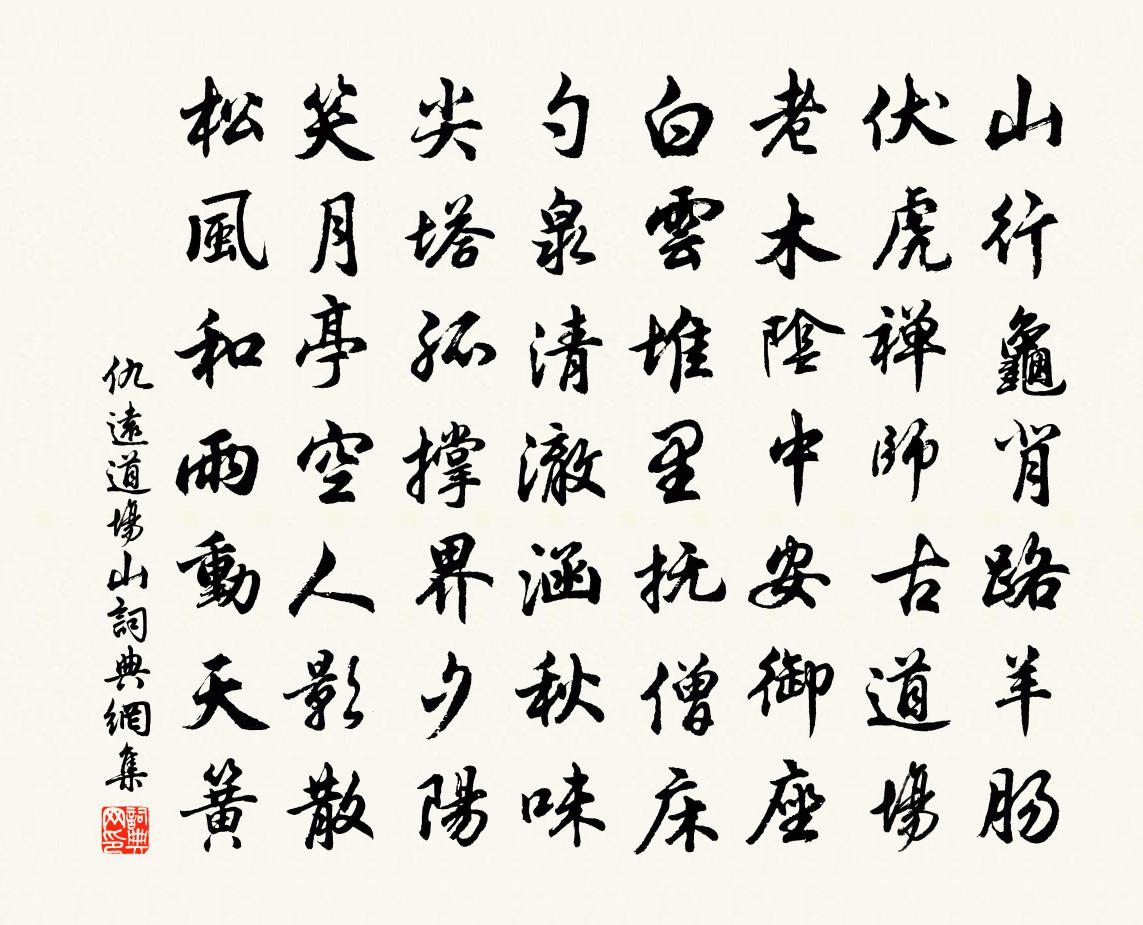 山行龜背路羊腸
伏虎禅師古道場
老木陰中安御座
白雲堆里抚僧床
勺泉清澈涵秋味
尖塔孤撐界夕陽
笑月亭空人影散
松風和雨動天簧
仇遠道場山詞典網集
詞典網印